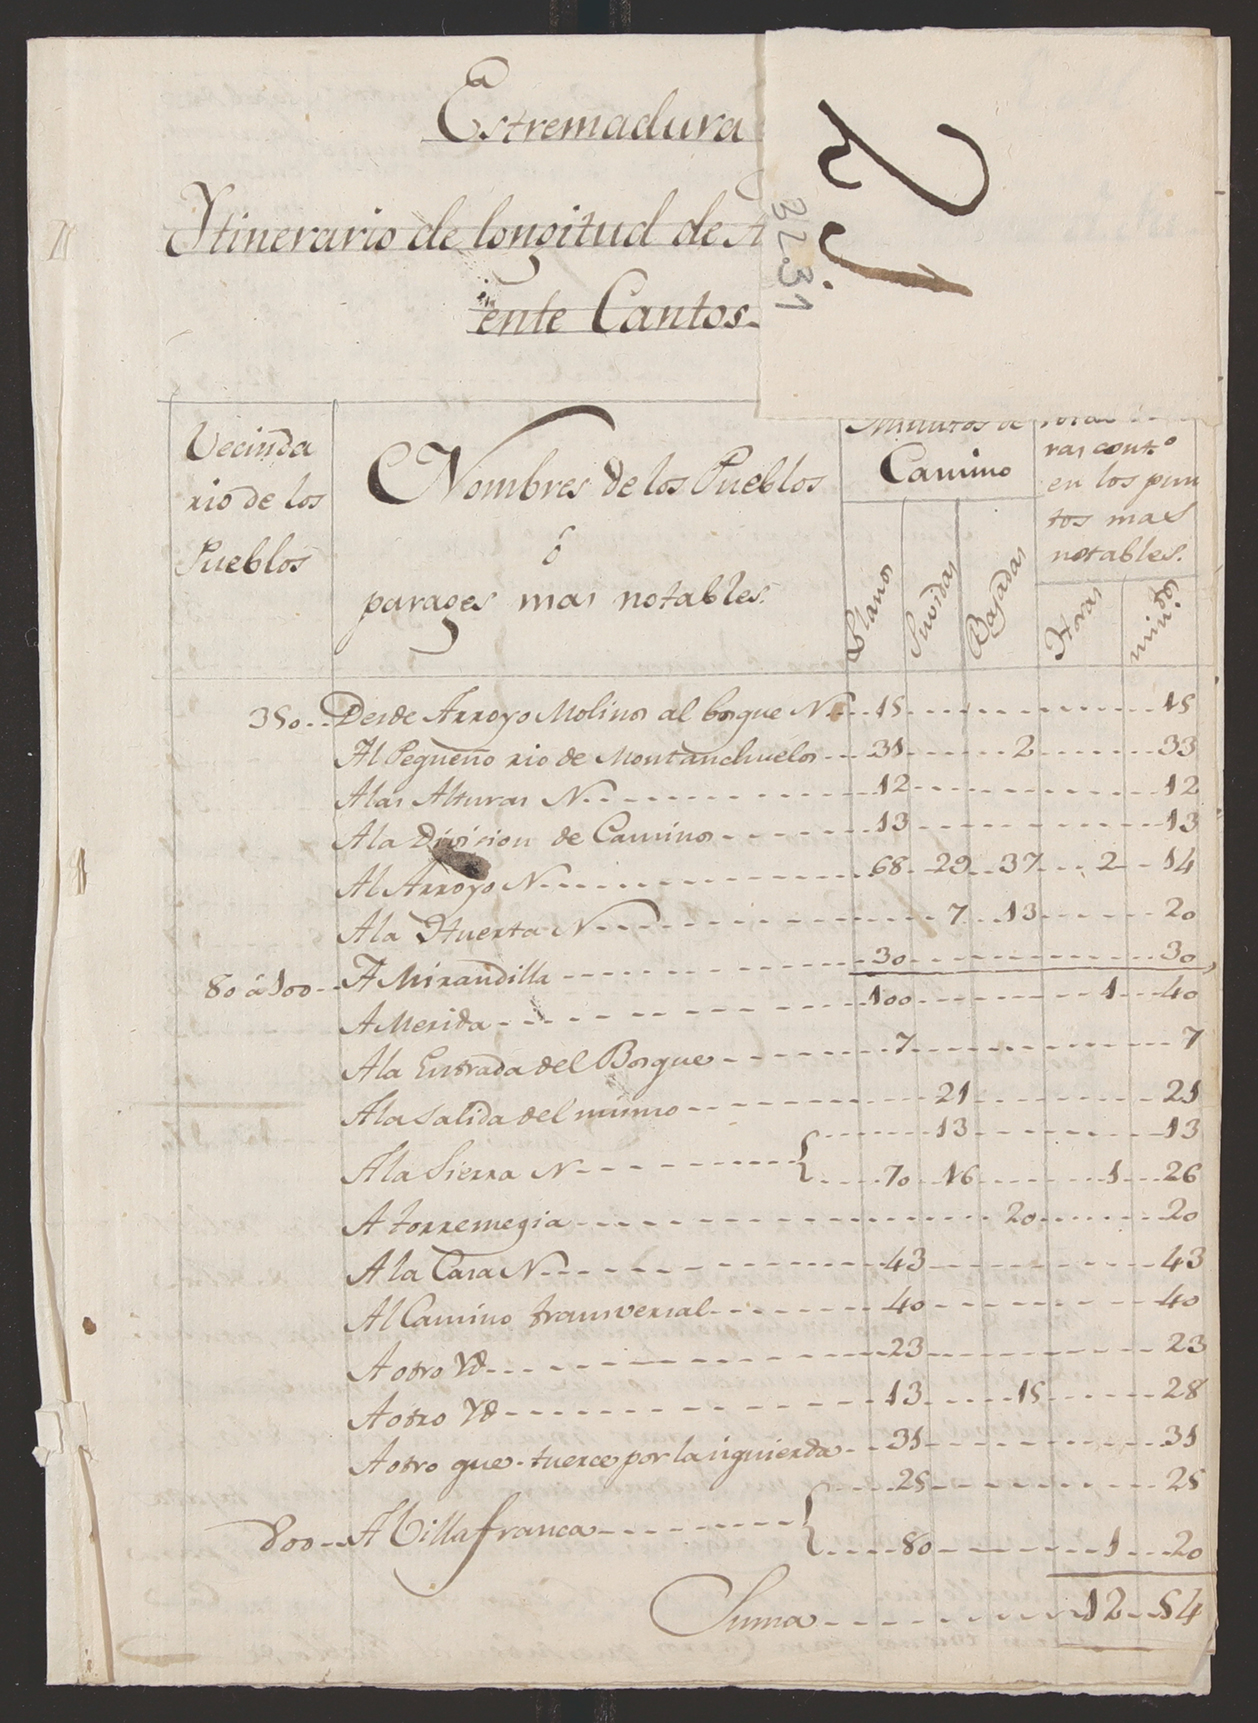 Estremadura
Ytinerario de longitud de A
ente Cantos.
32.31
Vecinda
rio de los
Pueblos
Nombres de los Pueblos
ó
parages mas notables.
Minutos de
Camino
Llanos
Suvidas
Bajadas
ras cont.º
en los pun
tos mas
notables.
Horas
min.os
350 Desde Arroyo Molinos al bosque N 15 15
Al Pequeño rio de Montanchuelos 31 2 33
A las Alturas N. 12 12
A la Division de Caminos 13 13
Al Arroyo N. 68 29 37 2 14
A la Huerta N. 7 13 20
80 á 100 A Mirandilla 30 30
A Merida 100 1 40
A la Entrada del Bosque 7 7
A la salida del mismo 21 21
13 13
A la Sierra N 70 16 1 26
A torremegia 20 20
A la Casa N. 43 43
Al Camino transversal 40 40
A otro Yd 23 23
A otro Yd 13 15 28
A otro que tuerce por la izquierda 31 31
25 25
800 A Villafranca 80 1 20
Suma 12 54